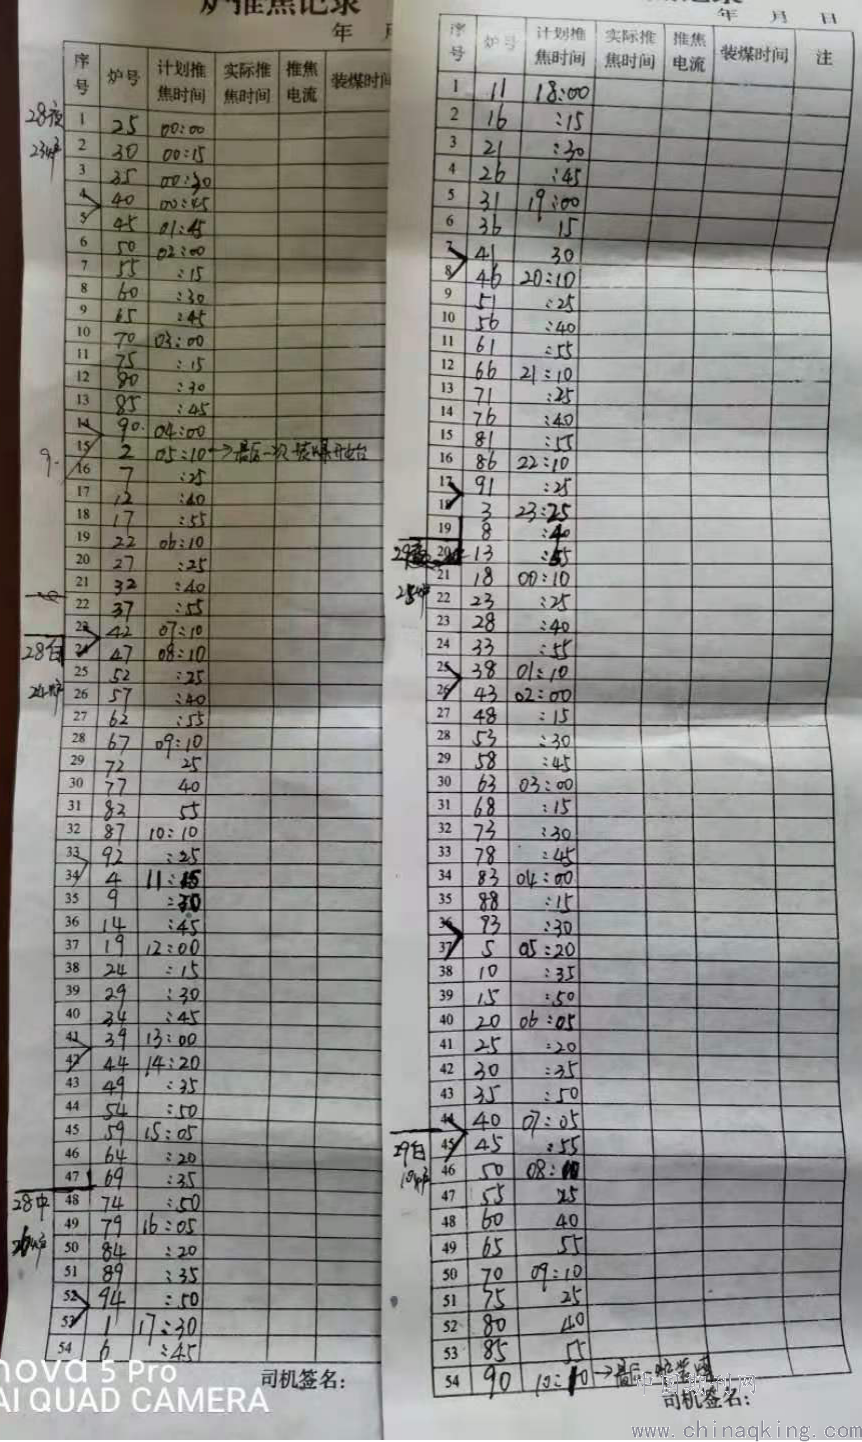 炉推焦记录
年 月
序号 炉号 计划推焦时间 实际推焦时间 推焦电流 装煤时间
28夜
23炉
1 25 00:00
2 30 00:15
3 35 00:30
4 40 00:45
5 45 01:45
6 50 02:00
7 55 :15
8 60 :30
9 65 :45
10 70 03:00
11 75 :15
12 80 :30
13 85 :45
14 90 04:00
15 2 05:10
16 7 :25
17 12 :40
18 17 :55
19 22 06:10
20 27 :25
21 32 :40
22 37 :55
23 42 07:10
28白
24炉
24 47 08:10
25 52 :25
26 57 :40
27 62 :55
28 67 09:10
29 72 25
30 77 40
31 82 55
32 87 10:10
33 92 :25
34 4 11:15
35 9 :30
36 14 :45
37 19 12:00
38 24 :15
39 29 :30
40 34 :45
41 39 13:00
42 44 14:20
43 49 :35
44 54 :50
45 59 15:05
46 64 :20
47 69 :35
28中
26炉
48 74 :50
49 79 16:05
50 84 :20
51 89 :35
52 94 :50
53 1 17:30
54 6 :45
司机签名:
年 月 日
序号 炉号 计划推焦时间 实际推焦时间 推焦电流 装煤时间 注
1 11 18:00
2 16 :15
3 21 :30
4 26 :45
5 31 19:00
6 36 15
7 41 30
8 46 20:10
9 51 :25
10 56 :40
11 61 :55
12 66 21:10
13 71 :25
14 76 :40
15 81 :55
16 86 22:10
17 91 :25
18 3 23:25
19 8 :40
20 13 :55
29夜
25炉
21 18 00:10
22 23 :25
23 28 :40
24 33 :55
25 38 01:10
26 43 02:00
27 48 :15
28 53 :30
29 58 :45
30 63 03:00
31 68 :15
32 73 :30
33 78 :45
34 83 04:00
35 88 :15
36 93 :30
37 5 05:20
38 10 :35
39 15 :50
40 20 06:05
41 25 :20
42 30 :35
43 35 :50
44 40 07:05
29白
10炉
45 45 :55
46 50 08:10
47 55 25
48 60 40
49 65 55
50 70 09:10
51 75 25
52 80 40
53 85 55
54 90 10:10
司机签名:
nova 5 Pro
AI QUAD CAMERA
www.chinaqking.com